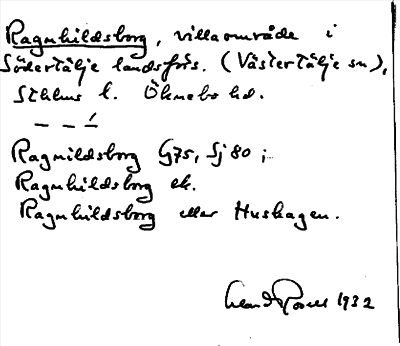 Ragnhildsborg, villaområde i
Södertälje landsförs. (Västertälje sn),
Sthlms l. Öknebo hd.
— — —
Ragnildsborg G75, Sj 80;
Ragnhildsborg ek.
Ragnhildsborg eller Hushagen.
1932